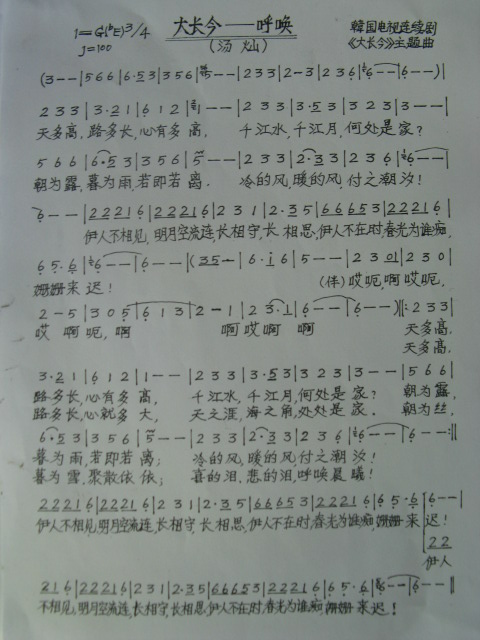 1=G(♭E)3/4 大长今——呼唤 韓国电视连续剧
J=100 (汤灿) 《大长今》主题曲
(3--|566|6·53|356|5--|233|2-3|236|6--|6--)|
233|3·21|612|1--|233|3·53|323|3--|
天多高,路多长,心有多高, 千江水,千江月,何处是家?
566|6·53|356|5--|233|2·33|236|6--|
朝为露,暮为雨,若即若离. 冷的风,暖的风付之潮汐!
6--|222216|222216|231|2·35|666653|222216|
伊人不相见,明月空流连,长相守,长相思,伊人不在时,春光为谁痴,
65·6|6--|6--|(35-|6·i6|5--|2301|230|
姗姗来迟! (伴)哎呃啊哎呃.
2-5|305|613|2--|2-1|23·1|6--|6--):|233|
哎 啊呃,啊 啊哎啊 啊 天多高,
天多高,
3·21|612|1--|233|3·53|323|3--|566|
路多长,心有多高, 千江水,千江月,何处是家? 朝为露,
路多长,心就多大, 天之涯,海之角,处处是家. 朝为丝,
6·53|356|5--|233|2·33|236|6--|6--:|
暮为雨,若即若离; 冷的风,暖的风付之潮汐!
暮为雪,聚散依依; 喜的泪,悲的泪,呼唤晨曦!
222216|222216|231|2·35|666653|222216|65·6|6--|
伊人不相见,明月空流连,长相守,长相思,伊人不在时,春光为谁痴,姗姗来迟!
22
伊人
216|222216|231|2·35|666653|222216|65·6|6--|6--||
不相见,明月空流连,长相守,长相思,伊人不在时,春光为谁痴,姗姗来迟!